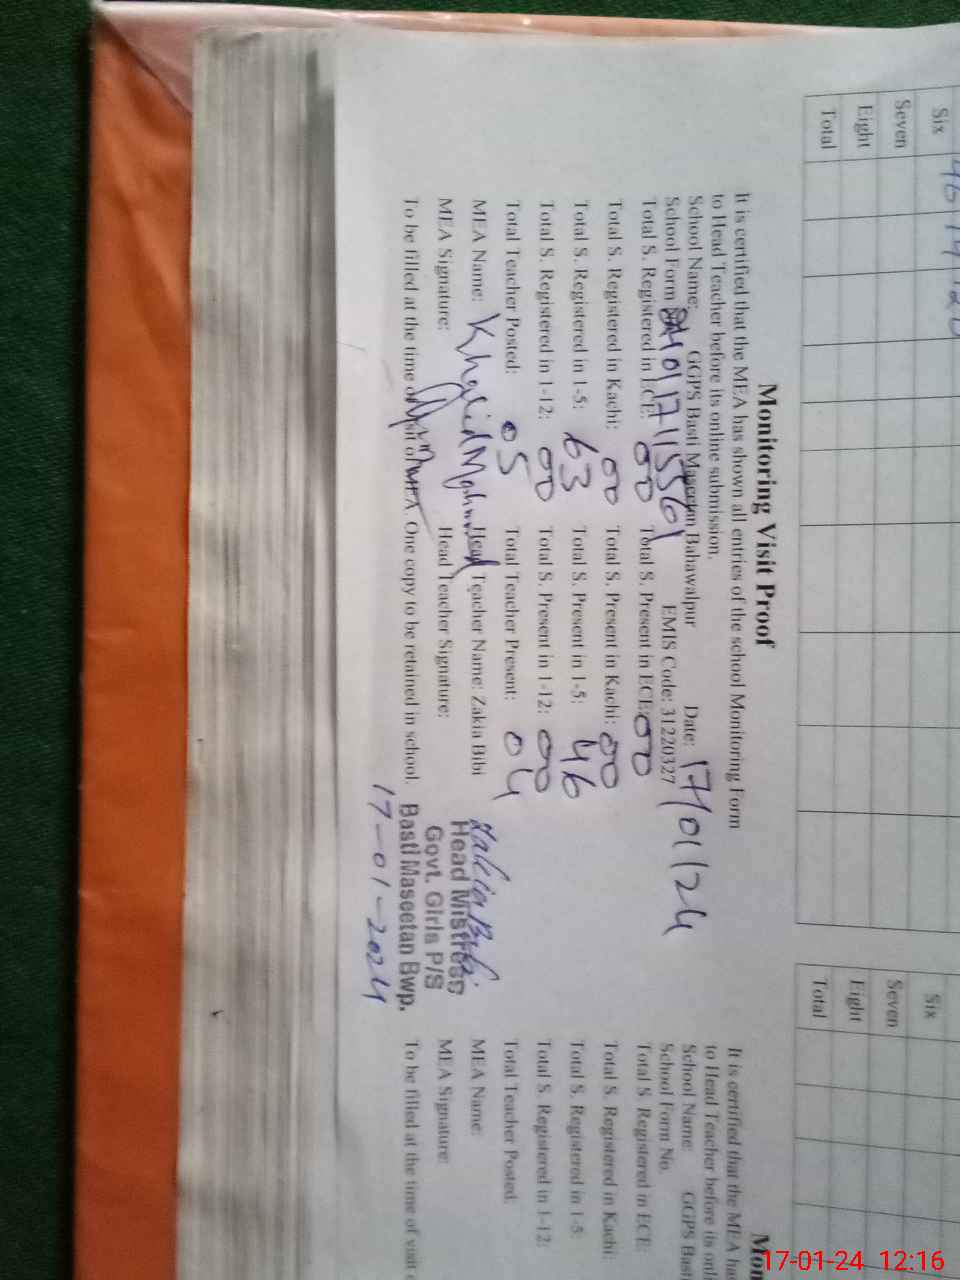 Six 46 14 120
Seven
Eight
Total
Monitoring Visit Proof
It is certified that the MEA has shown all entries of the school Monitoring Form
to Head Teacher before its online submission.
School Name: GGPS Basti Maseetan Bahawalpur Date: 17/01/24
School Form EMIS Code: 31220327
Total S. Registered in ECE: 00 Total S. Present in ECE: 00
Total S. Registered in Kachi: 00 Total S. Present in Kachi: 00
Total S. Registered in 1-5: 63 Total S. Present in 1-5: 46
Total S. Registered in 1-12: 00 Total S. Present in 1-12: 00
Total Teacher Posted: 05 Total Teacher Present: 04
MEA Name: Khalid Mahmood Head Teacher Name: Zakia Bibi
MEA Signature: Head Teacher Signature: Zakia Bibi
To be filled at the time of visit of MEA. One copy to be retained in school.
Head Mistress
Govt. Girls P/S
Basti Maseetan Bwp.
17-01-2024
Six
Seven
Eight
Total
Mon
It is certified that the MEA ha
to Head Teacher before its onl
School Name: GGPS Bast
School Form No.
Total S Registered in ECE:
Total S. Registered in Kachi:
Total S. Registered in 1-5:
Total S. Registered in 1-12:
Total Teacher Posted:
MEA Name:
MEA Signature:
To be filled at the time of visit o
17-01-24 12:16